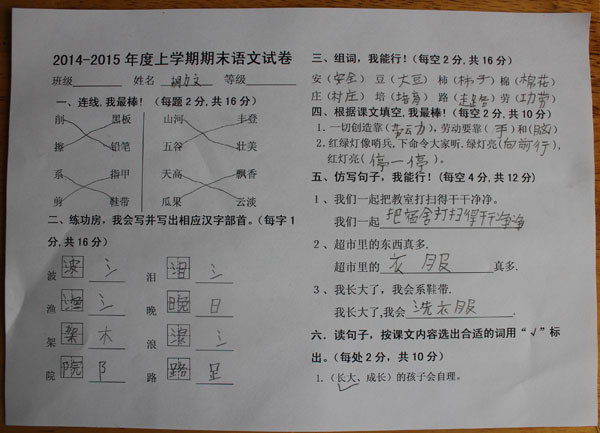 2014-2015 年度上学期期末语文试卷
班级 姓名 等级
一、连线,我最棒！（每题2分,共16分）
削 黑板 山河 丰登
擦 铅笔 五谷 壮美
系 指甲 天高 飘香
剪 鞋带 瓜果 云淡
二、练功房，我会写并写出相应汉字部首。（每字1
分,共16分）
波 波 氵 泪 泪 氵
渔 渔 氵 晚 晚 日
架 架 木 浪 浪 氵
院 院 阝 路 路 足
三、组词，我能行！（每空2分,共16分）
安（安全）豆（大豆）柿（柿子）棉（棉花）
庄（村庄）培（培育）路（走路）劳（功劳）
四、根据课文填空,我最棒！（每空2分,共10分）
1. 一切创造靠（劳动力），劳动要靠（手）和（脑）
2. 红绿灯像哨兵,下命令大家听.绿灯亮（向前行），
红灯亮（停一停）。
五、仿写句子，我能行！（每空4分,共12分）
1、我们一起把教室打扫得干干净净。
我们一起 把宿舍打扫得干干净净
2、超市里的东西真多.
超市里的 衣服 真多.
3、我长大了，我会系鞋带.
我长大了,我会 洗衣服 .
六．读句子，按课文内容选出合适的词用“√”标
出。（每处2分，共10分）
1.（长大√、成长）的孩子会自理。